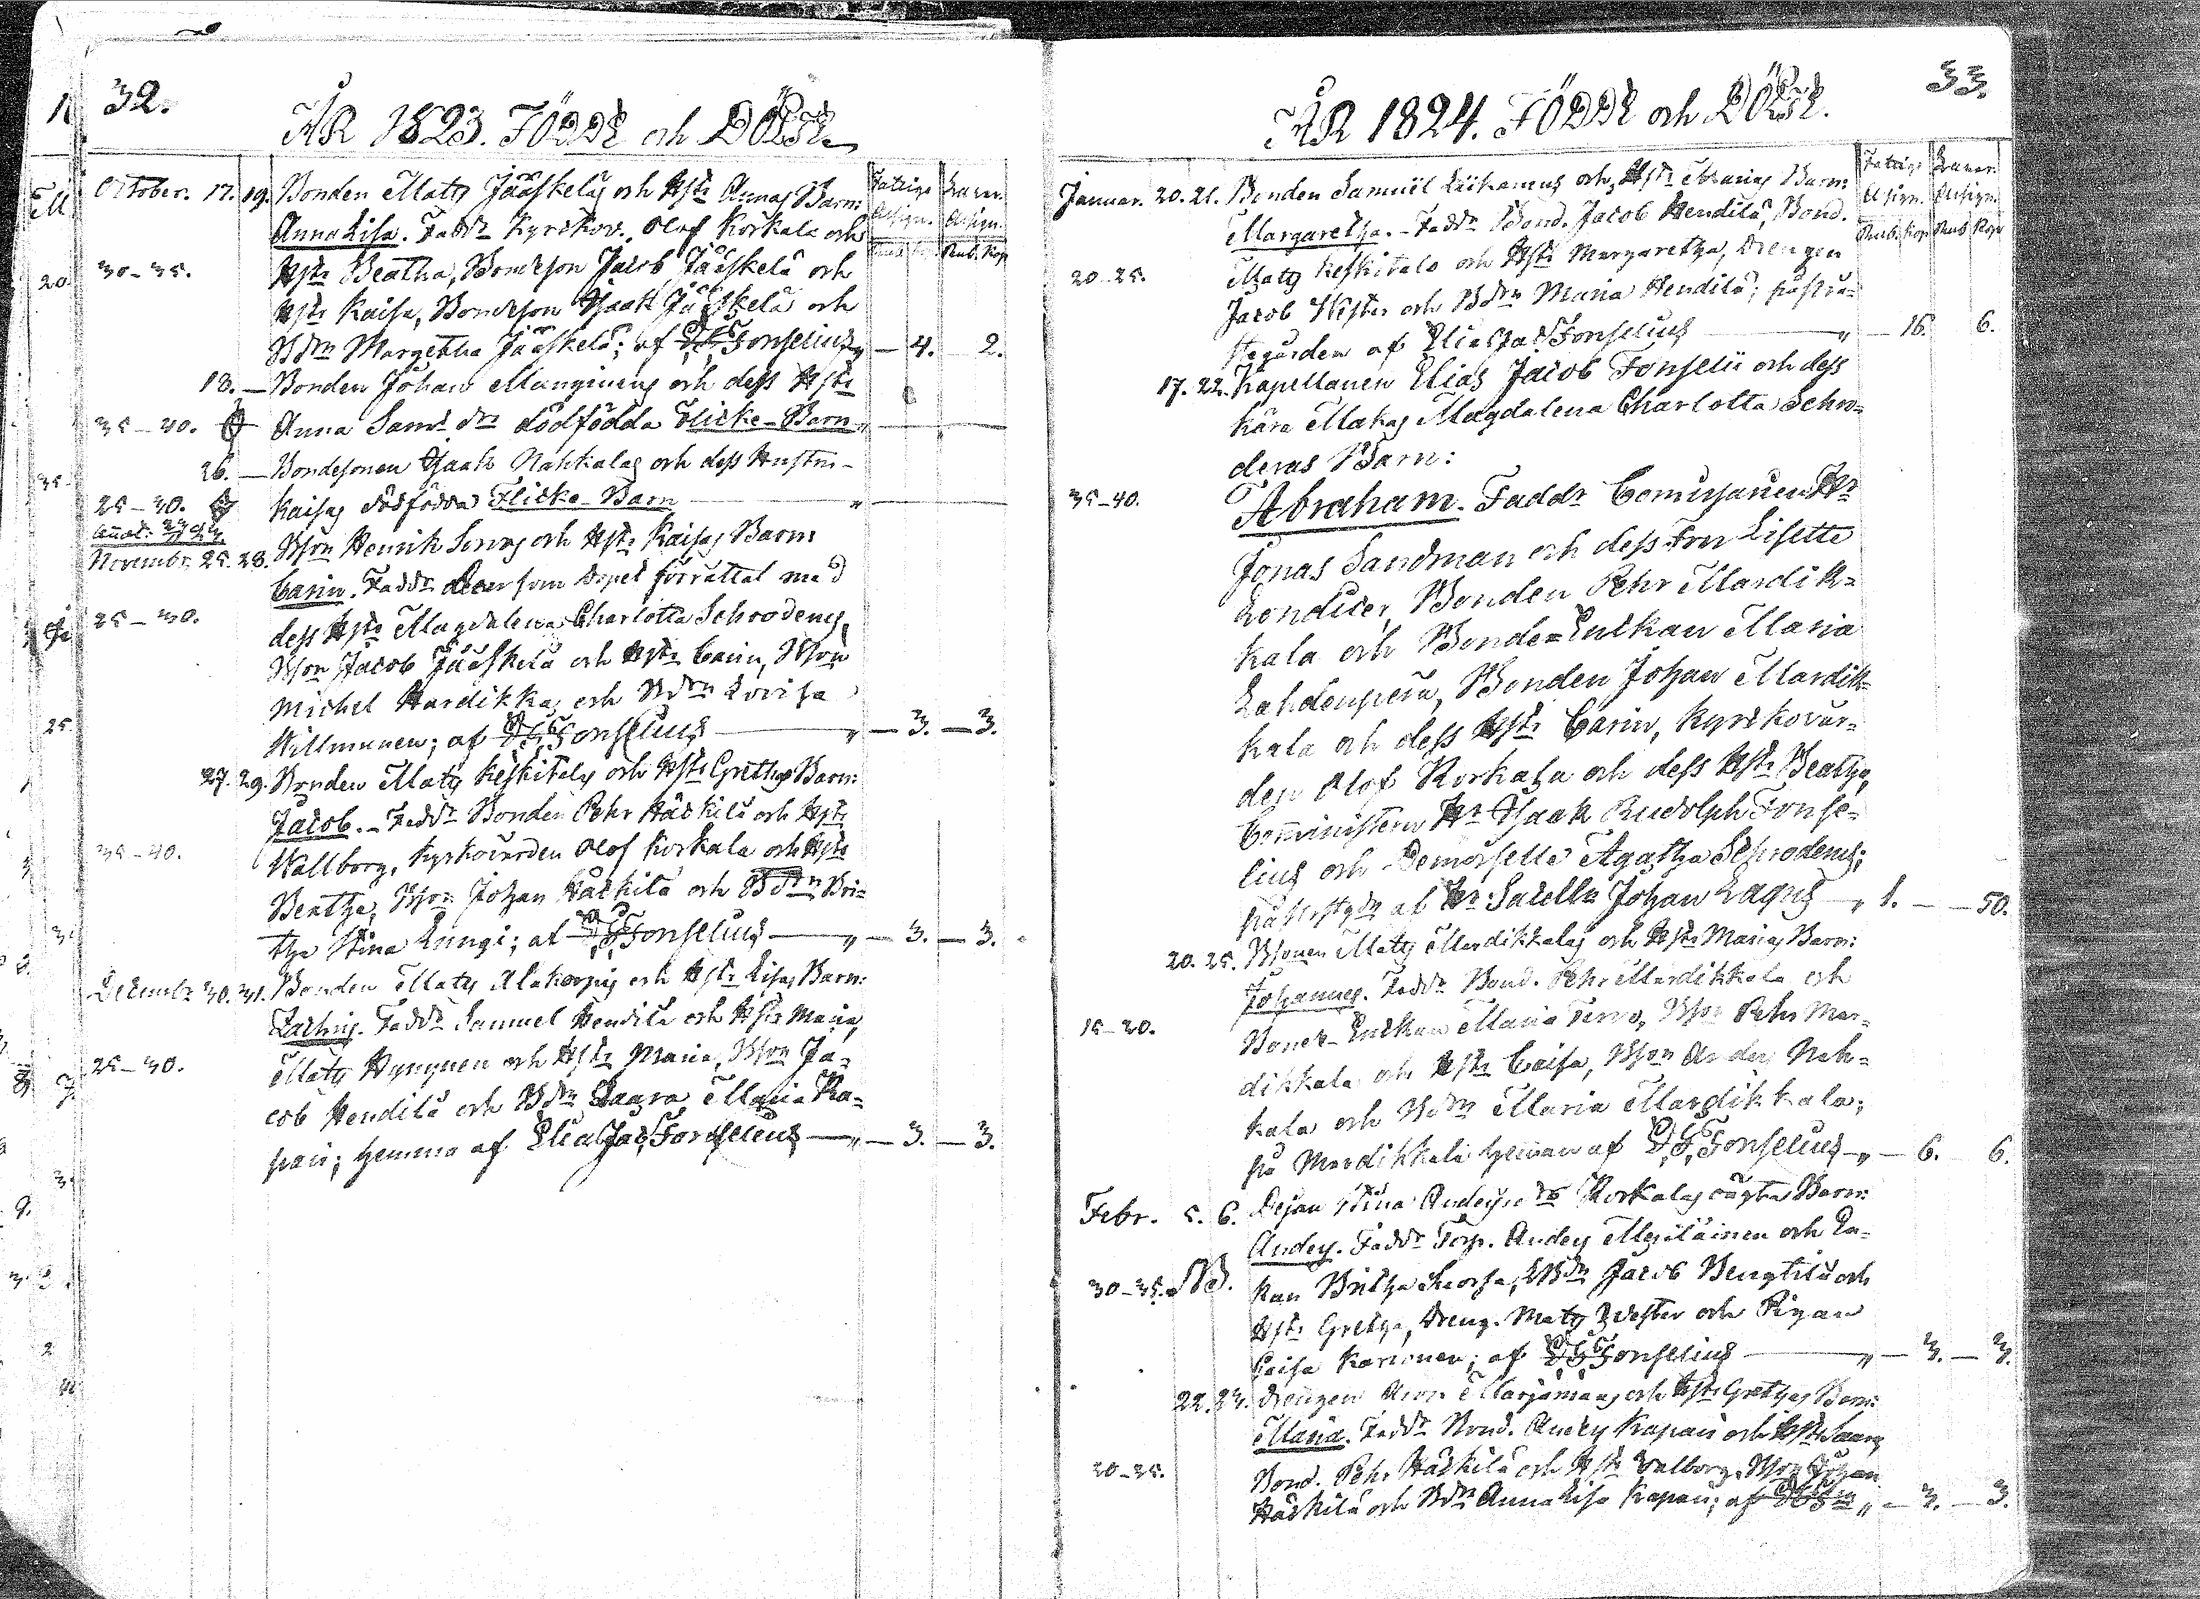 32.
ÅR 1823. FÖDDE och DÖPTE.
October. 17. 19. Bonden Matts Jääskeläs och Hstr Annas Barn:
Anna Lisa. Faddr Kyrkov. Olof Korkala och
30-35. Hstr Beatha, Bondeson Jacob Jääskelä och
Hstr Kaisa, Bondeson Isaak Jääskelä och
Bdrn Margetha Jääskelä; af Fonselius „ — 4. 2.
18. — Bonden Johan Manginens och dess Hstr
35-40. Anna Sams dr dödfödda Flicke-Barn „
26. — Bondesonen Isaak Nahkalas och dess Hustru
25-30. Kaisas dödfödda Flicke-Barn „
Novembr. 25. 28. Bson Henrik och Hstr Kaisas Barn:
Carin. Faddr som dopet förrättat med
25-30. dess Hstr Magdalena Charlotta Schroderus,
Bson Jacob Jääskelä och Hstr Carin, Bson
Michel Hardikka, och Bdrn Lovisa
Willmunen; af Fonselius „ — 3. — 3.
27. 29. Bonden Matts Keskitalos och Hstr Grethas Barn:
Jacob. - Faddr Bonden Pehr Häckilä och Hstr
35-40. Wallborg, Kyrkovärden Olof Korkala och Hstr
Beatha, Bson Johan Häckilä och Bdrn Bri-
tha Stina Lungi; af Fonselius „ — 3. — 3.
Decembr. 30. 31. Bonden Matts Alakorpis och Hstr Lisas Barn:
Zachris. Faddr Samuel Hendilä och Hstr Maria,
25-30. Matts Hynynen och Hstr Maria, Bson Ja-
cob Hendilä och Bdrn Saara Maria Ka-
pain; hemma af Elias Jac. Fonselius „ — 3. — 3.
33.
ÅR 1824. FÖDDE och DÖPTE.
Fattige Assign. Rub. Kop
Januar. 20. 21. Bonden Samuël och Hstr Marias Barn:
Margaretha. - Faddr Bond. Jacob Hendilä, Bond.
20-25. Matts Keskitalo och Hstr Margaretha, Drengen
Jacob Wester och Bdrn Maria Hendilä; på Prä-
stegården af Elias Jac Fonselius „ — 16. 6.
17. 22. Kapellanen Elias Jacob Fonselii och dess
kära Makas Magdalena Charlotta Schro-
deras Barn:
35-40. Abraham. Faddr Commissarien Hr
Jonas Sandman och dess Fru Lisette
Londicer, Bonden Pehr Mardik-
kala och Bonde-Enckan Maria
Lahdenperä, Bonden Johan Mardik-
kala och dess Hstr Carin, Kyrkovär-
den Olof Korkala och dess Hstr Beatha,
Comministern Hr Isaak Rudolph Fonse-
lius och Demoiselle Agatha Schroderus;
på Prestgdn af Hr Sacelln Johan Lagus „ 1. — — 50.
20. 25. Bsonen Matts Mardikkalas och Hstr Marias Barn:
Johannes. Faddr Bond. Pehr Mardikkala och
15-20. Bonde-Enckan Maria Tervo, Bson Pehr Mar-
dikkala och Hstr Caisa, Bson Anders Nah-
kala och Bdrn Maria Mardikkala;
på Mardikkala hemman af Fonselius „ — 6. 6.
Febr. 5. 6. Pigan Stina Andersdr Korkalas oägta Barn:
Anders. Faddr Torp. Anders Meriläinen och En-
30-35. NB. kan Britha, Bdn Jacob Bengtilä och
Hstr Gretha, Dreng. Matts Wester och Pigan
Caisa Karvonen; af Fonselius „ — 3. — 3.
22. 23. Drengen Aron Marjamaas och Hstr Grethas Barn:
Maria. Faddr Bond. Anders Kapain och Hstr Saara,
20-25. Bond. Pehr Häckilä och Hstr Valborg, Bson Johan
Häckilä och Bdrn Anna Lisa Kapain; af „ — 3. — 3.